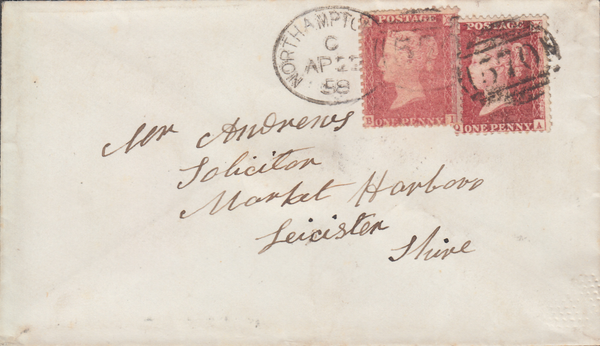 NORTHAMPTON
C
AP 22
58
POSTAGE
ONE PENNY
POSTAGE
570
ONE PENNY
A
Mr Andrews
Solicitor
Market Harboro
Leicister
Shire